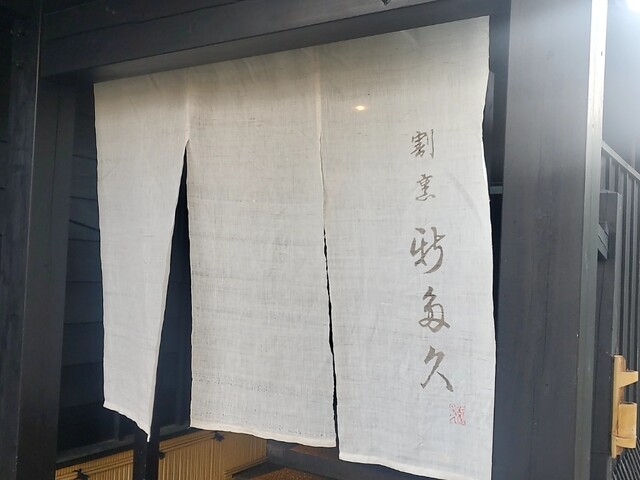 割烹 新多久